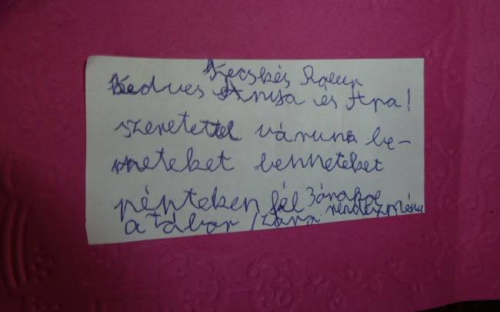 Kecskés
Kedves Anya és Apa!
szeretettel várunk be-
nneteket benneteket
pénteken fél 3órakor
a tábor záró rendezvény